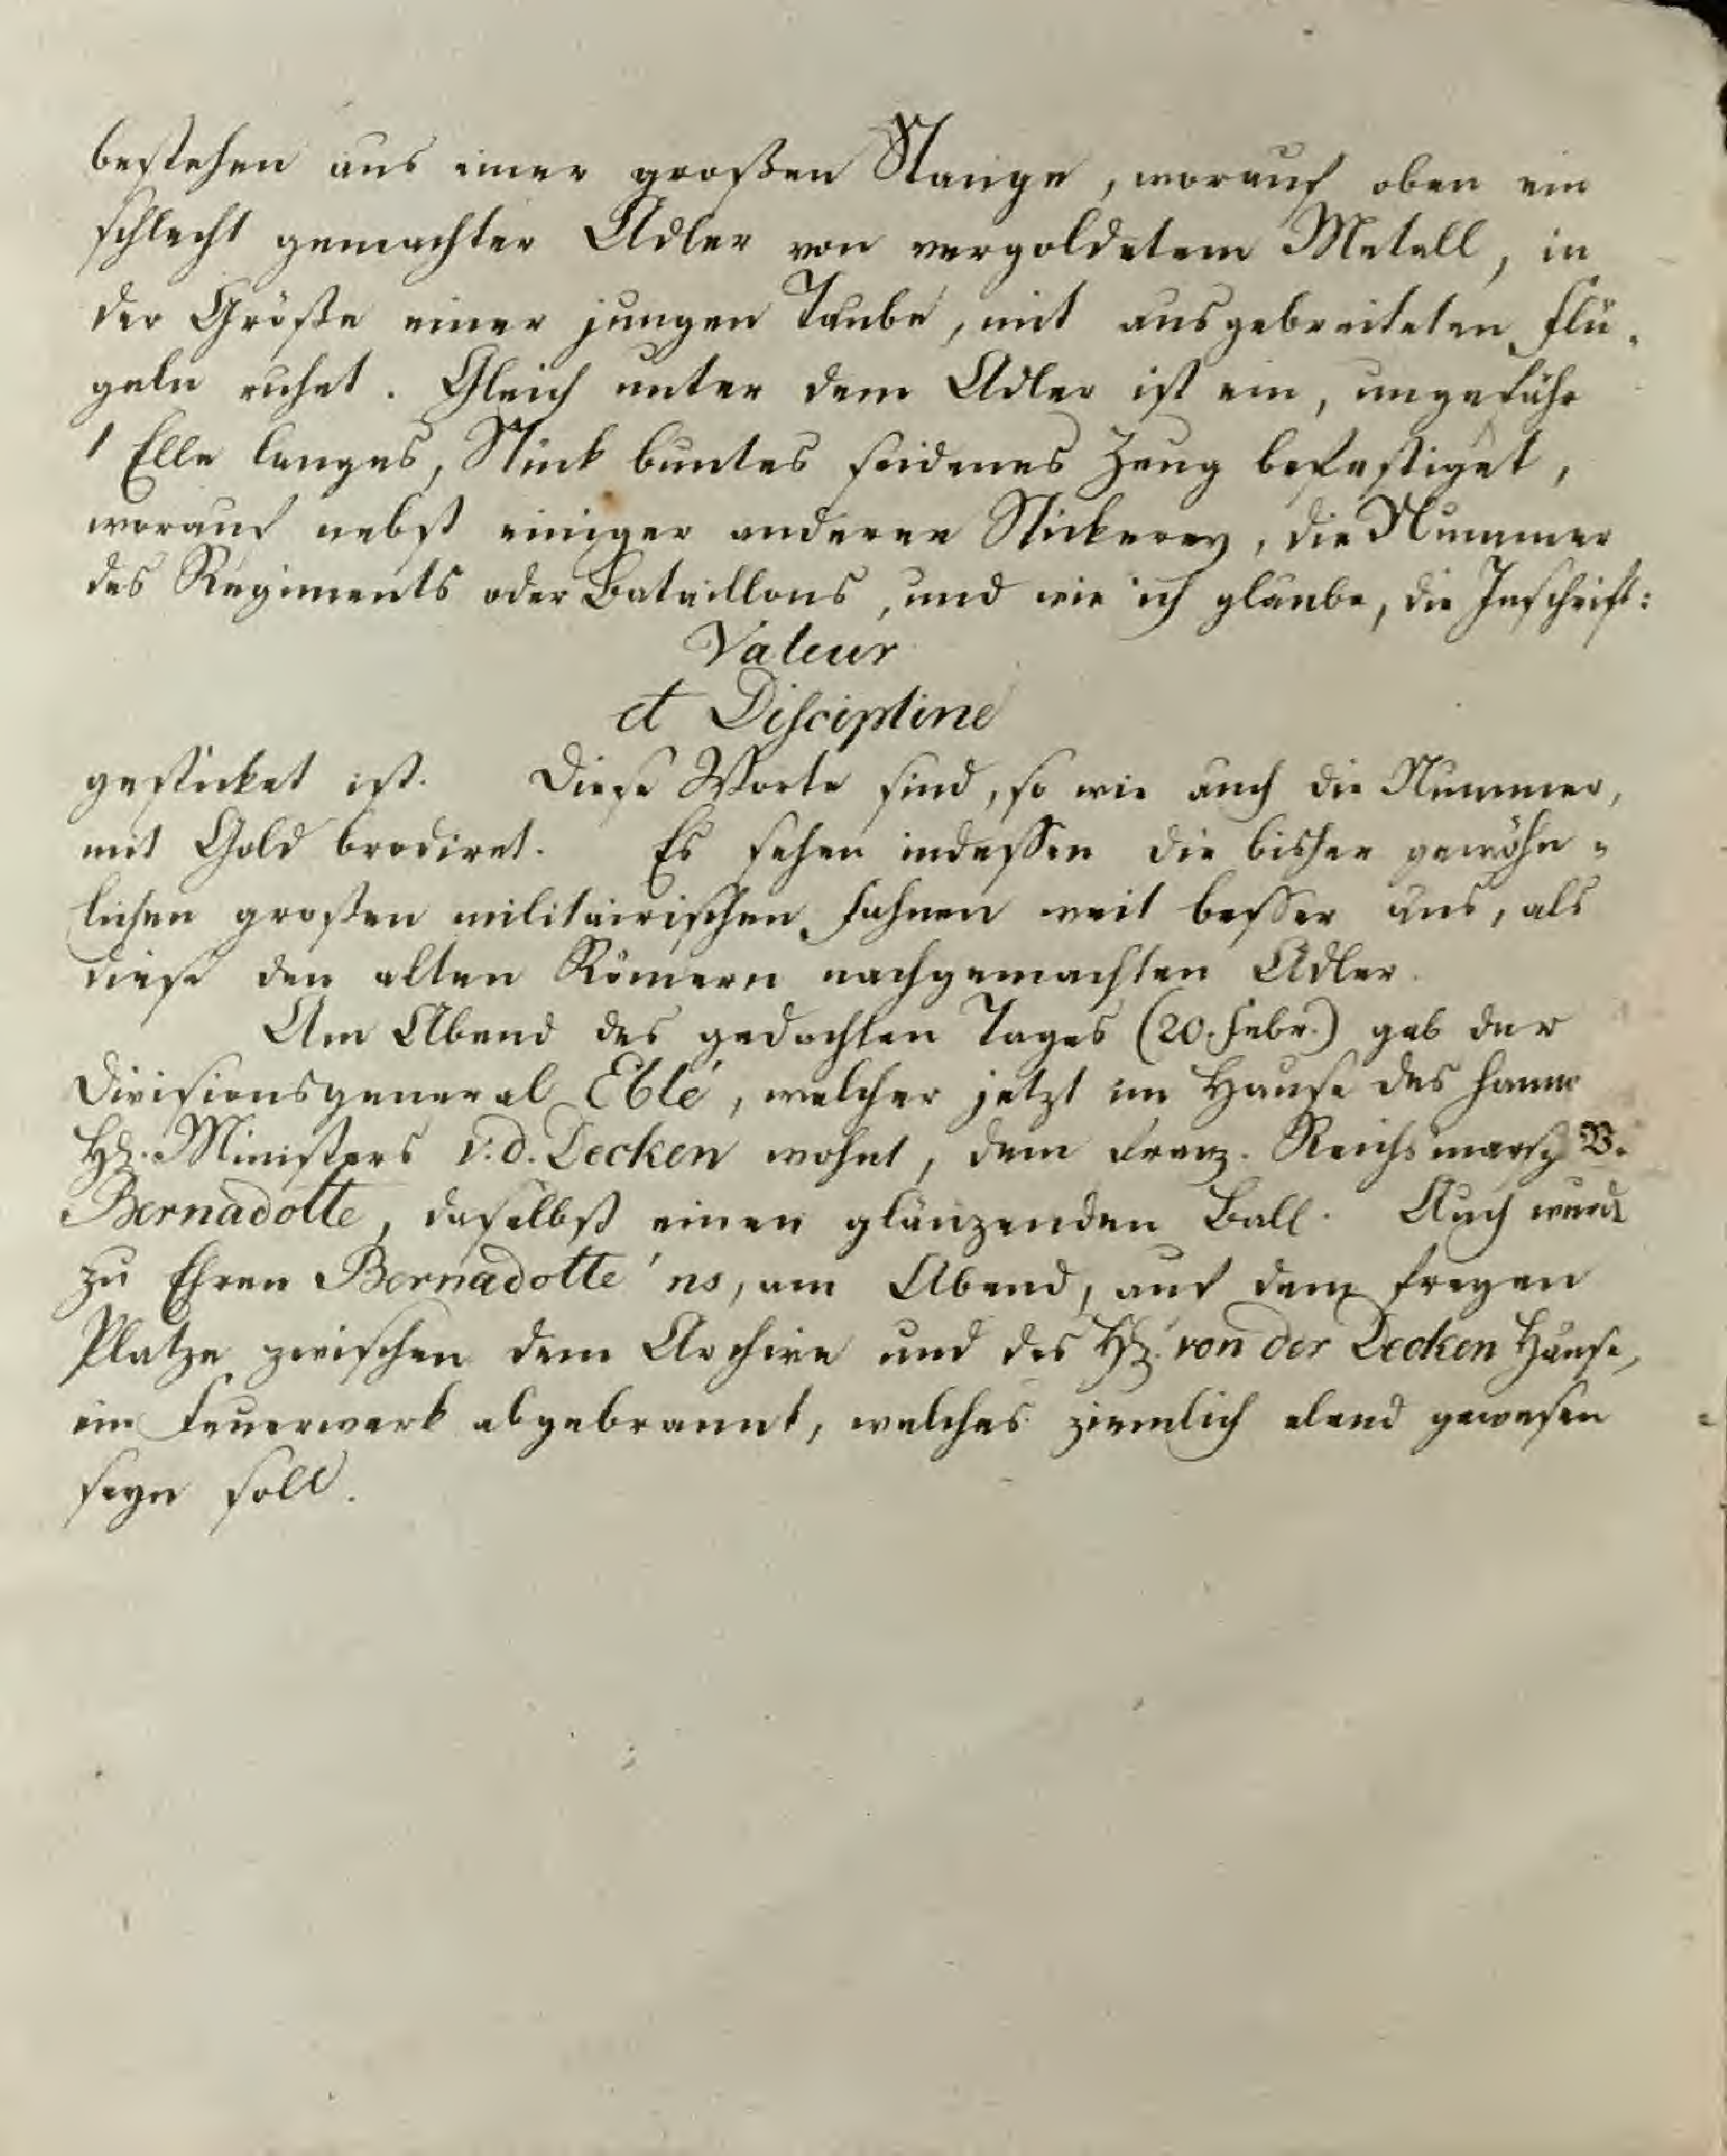 bestehen aus einer großen Stange, worauf oben ein
schlecht gemachter Adler von vergoldetem Metall, in
der Größe einer jungen Taube, mit ausgebreiteten Flü-
geln ruhet. Gleich unter dem Adler ist ein, ungefähr
1 Elle langes, Stück buntes seidenes Zeug befestiget,
worauf nebst einiger anderer Stickerey, die Nummer
des Regiments oder Bataillons, und wie ich glaube, die Inschrift:
Valeur
et Discipline
gesticket ist. Diese Worte sind, so wie auch die Nummer,
mit Gold brodiret. Es sehen indessen die bisher gewöhn-
lichen großen militairischen Fahnen weit besser aus, als
diese den alten Römern nachgemachten Adler.
Am Abend des gedachten Tages (20. Febr.) gab der
Divisionsgeneral Eblé, welcher jetzt im Hause des hann
H. Ministers v. d. Decken wohnt, dem franz. Reichsmarsch B.
Bernadotte, daselbst einen glänzenden Ball. Auch wurde
zu Ehren Bernadotte'ns, am Abend, auf dem freyen
Platze zwischen dem Archive und des H. von der Decken Hause,
ein Feuerwerk abgebrannt, welches ziemlich elend gewesen
seyn soll.